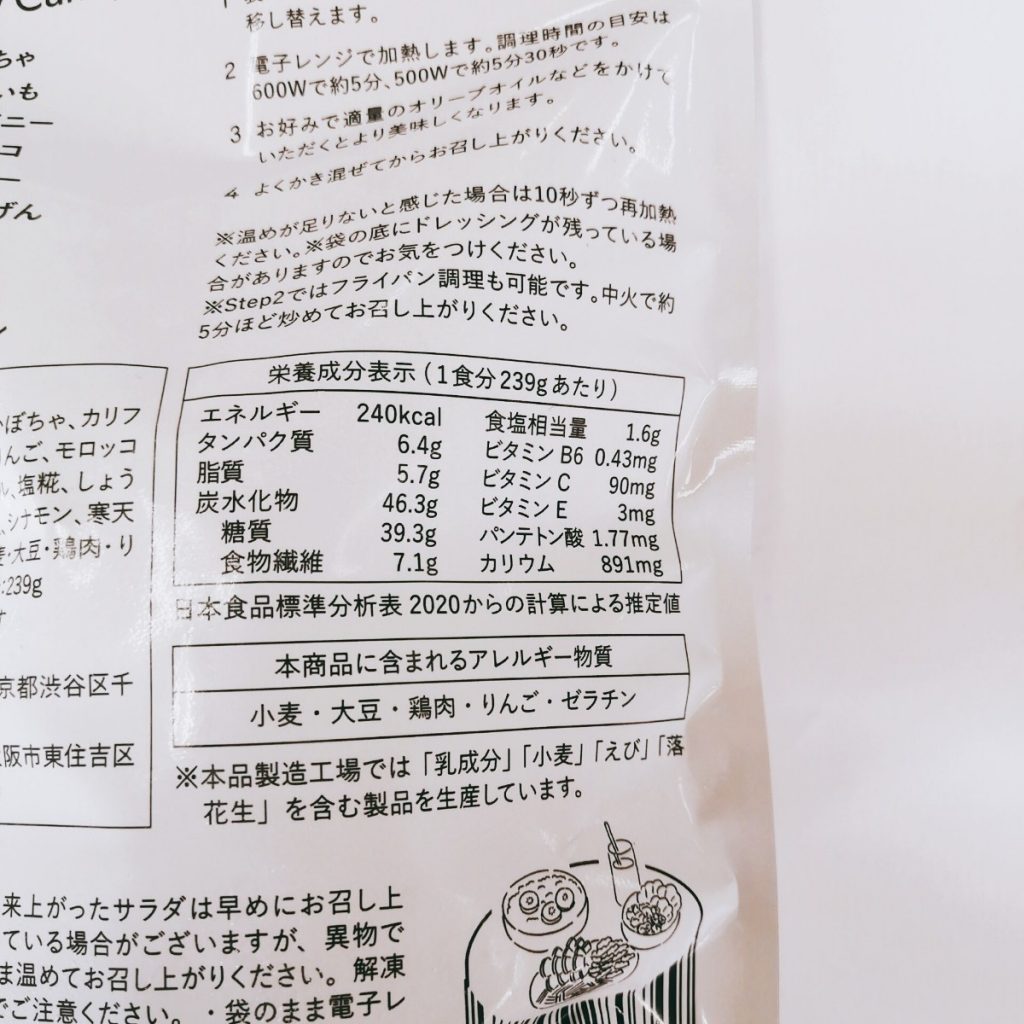 移し替えます。
2 電子レンジで加熱します。調理時間の目安は
600Wで約5分、500Wで約5分30秒です。
3 お好みで適量のオリーブオイルなどをかけて
いただくとより美味しくなります。
4 よくかき混ぜてからお召し上がりください。
※温めが足りないと感じた場合は10秒ずつ再加熱
ください。※袋の底にドレッシングが残っている場
合がありますのでお気をつけください。
※Step2ではフライパン調理も可能です。中火で約
5分ほど炒めてお召し上がりください。
ちゃ
いも
ニー
コ
ー
げん
ン
ぼちゃ、カリフ
んご、モロッコ
ル、塩糀、しょう
シナモン、寒天
麦・大豆・鶏肉・り
:239g
す
京都渋谷区千
阪市東住吉区
栄養成分表示(1食分239gあたり)
エネルギー 240kcal
タンパク質 6.4g
脂質 5.7g
炭水化物 46.3g
糖質 39.3g
食物繊維 7.1g
食塩相当量 1.6g
ビタミン B6 0.43mg
ビタミン C 90mg
ビタミン E 3mg
パンテトン酸 1.77mg
カリウム 891mg
日本食品標準分析表 2020からの計算による推定値
本商品に含まれるアレルギー物質
小麦・大豆・鶏肉・りんご・ゼラチン
※本品製造工場では「乳成分」「小麦」「えび」「落
花生」を含む製品を生産しています。
来上がったサラダは早めにお召し上
ている場合がございますが、異物で
ま温めてお召し上がりください。解凍
でご注意ください。・袋のまま電子レ